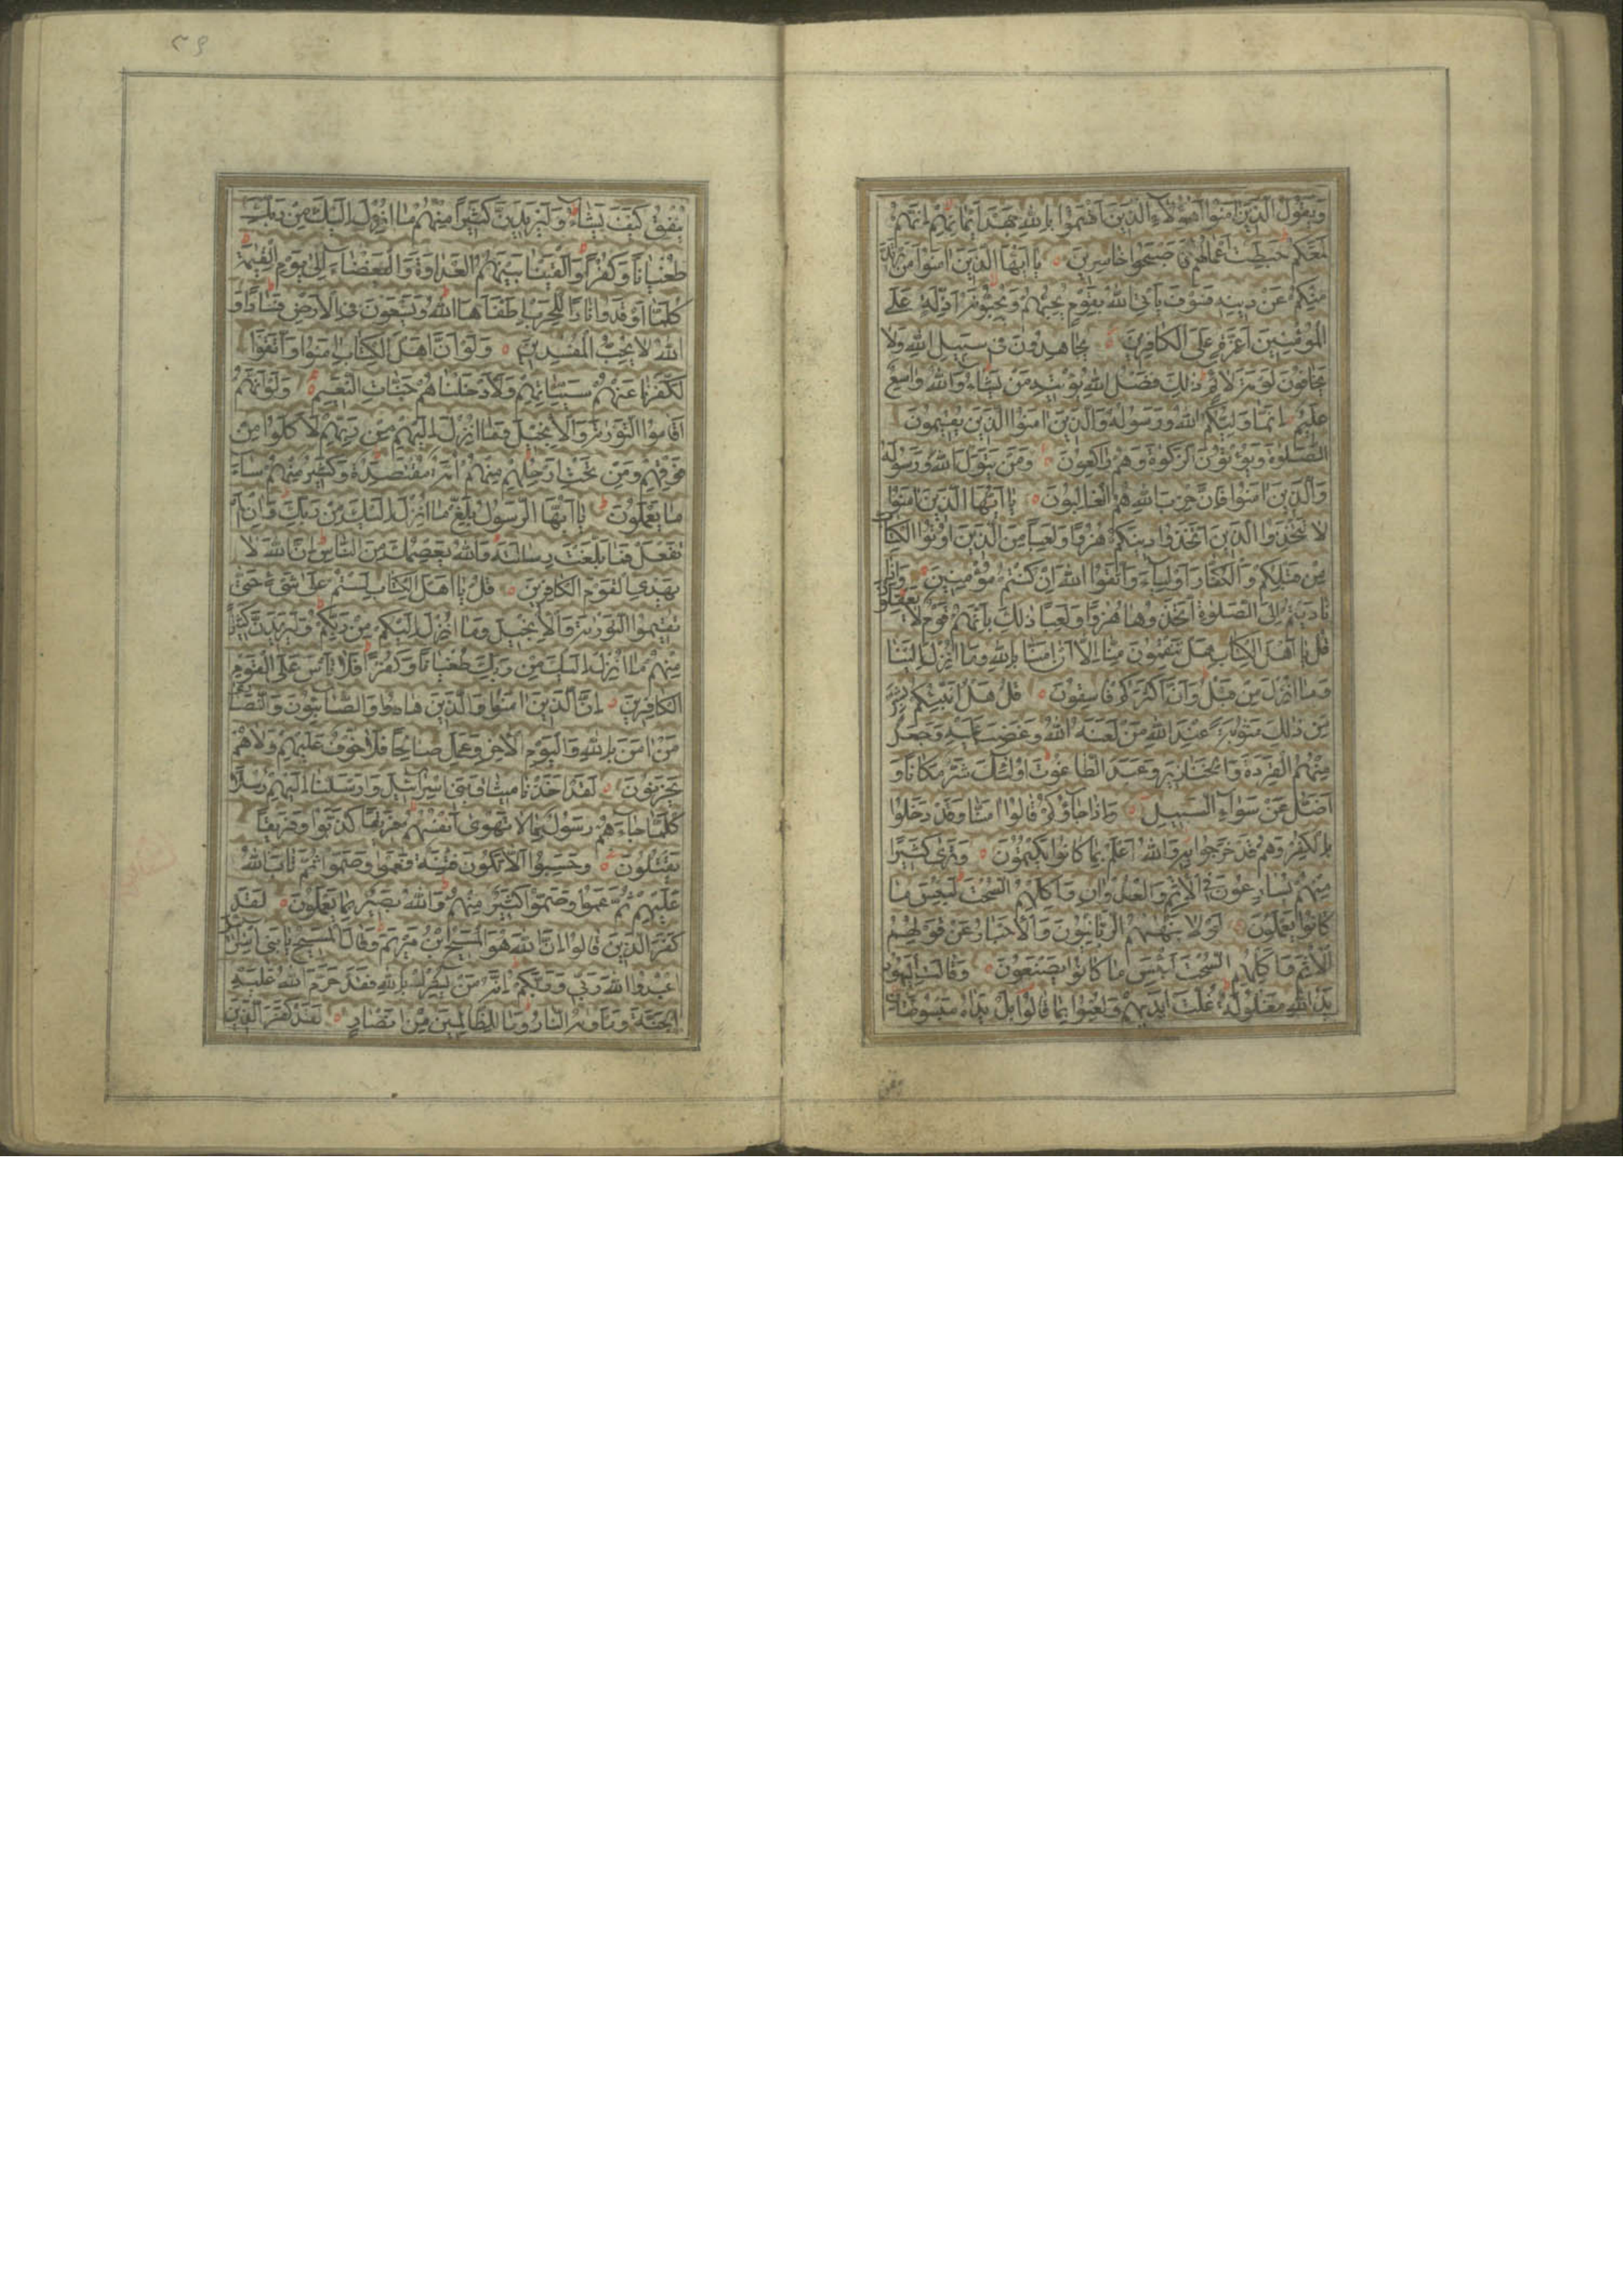 وَيَقُولُ الَّذِينَ اٰمَنُوا اَهٰؤُلَاءِ الَّذِينَ اَقْسَمُوا بِاللهِ جَهْدَ اَيْمَانِهِمْ اِنَّهُمْ
لَمَعَكُمْ حَبِطَتْ اَعْمَالُهُمْ فَاَصْبَحُوا خَاسِرِينَ يَا اَيُّهَا الَّذِينَ اٰمَنُوا مَنْ يَرْتَدَّ
مِنْكُمْ عَنْ دِينِهِ فَسَوْفَ يَأْتِي اللهُ بِقَوْمٍ يُحِبُّهُمْ وَيُحِبُّونَهُ اَذِلَّةٍ عَلَى
الْمُؤْمِنِينَ اَعِزَّةٍ عَلَى الْكَافِرِينَ يُجَاهِدُونَ فِي سَبِيلِ اللهِ وَلَا
يَخَافُونَ لَوْمَةَ لَائِمٍ ذٰلِكَ فَضْلُ اللهِ يُؤْتِيهِ مَنْ يَشَاءُ وَاللهُ وَاسِعٌ
عَلِيمٌ اِنَّمَا وَلِيُّكُمُ اللهُ وَرَسُولُهُ وَالَّذِينَ اٰمَنُوا الَّذِينَ يُقِيمُونَ
الصَّلٰوةَ وَيُؤْتُونَ الزَّكٰوةَ وَهُمْ رَاكِعُونَ وَمَنْ يَتَوَلَّ اللهَ وَرَسُولَهُ
وَالَّذِينَ اٰمَنُوا فَاِنَّ حِزْبَ اللهِ هُمُ الْغَالِبُونَ يَا اَيُّهَا الَّذِينَ اٰمَنُوا
لَا تَتَّخِذُوا الَّذِينَ اتَّخَذُوا دِينَكُمْ هُزُوًا وَلَعِبًا مِنَ الَّذِينَ اُوتُوا الْكِتَابَ
مِنْ قَبْلِكُمْ وَالْكُفَّارَ اَوْلِيَاءَ وَاتَّقُوا اللهَ اِنْ كُنْتُمْ مُؤْمِنِينَ وَاِذَا
نَادَيْتُمْ اِلَى الصَّلٰوةِ اتَّخَذُوهَا هُزُوًا وَلَعِبًا ذٰلِكَ بِاَنَّهُمْ قَوْمٌ لَا يَعْقِلُونَ
قُلْ يَا اَهْلَ الْكِتَابِ هَلْ تَنْقِمُونَ مِنَّا اِلَّا اَنْ اٰمَنَّا بِاللهِ وَمَا اُنْزِلَ اِلَيْنَا
وَمَا اُنْزِلَ مِنْ قَبْلُ وَاَنَّ اَكْثَرَكُمْ فَاسِقُونَ قُلْ هَلْ اُنَبِّئُكُمْ بِشَرٍّ
مِنْ ذٰلِكَ مَثُوبَةً عِنْدَ اللهِ مَنْ لَعَنَهُ اللهُ وَغَضِبَ عَلَيْهِ وَجَعَلَ
مِنْهُمُ الْقِرَدَةَ وَالْخَنَازِيرَ وَعَبَدَ الطَّاغُوتَ اُولٰئِكَ شَرٌّ مَكَانًا وَ
اَضَلُّ عَنْ سَوَاءِ السَّبِيلِ وَاِذَا جَاؤُكُمْ قَالُوا اٰمَنَّا وَقَدْ دَخَلُوا
بِالْكُفْرِ وَهُمْ قَدْ خَرَجُوا بِهِ وَاللهُ اَعْلَمُ بِمَا كَانُوا يَكْتُمُونَ وَتَرٰى كَثِيرًا
مِنْهُمْ يُسَارِعُونَ فِي الْاِثْمِ وَالْعُدْوَانِ وَاَكْلِهِمُ السُّحْتَ لَبِئْسَ مَا
كَانُوا يَعْمَلُونَ لَوْلَا يَنْهٰيهُمُ الرَّبَّانِيُّونَ وَالْاَحْبَارُ عَنْ قَوْلِهِمُ
الْاِثْمَ وَاَكْلِهِمُ السُّحْتَ لَبِئْسَ مَا كَانُوا يَصْنَعُونَ وَقَالَتِ الْيَهُودُ
يَدُ اللهِ مَغْلُولَةٌ غُلَّتْ اَيْدِيهِمْ وَلُعِنُوا بِمَا قَالُوا بَلْ يَدَاهُ مَبْسُوطَتَانِ
٣٩
يُنْفِقُ كَيْفَ يَشَاءُ وَلَيَزِيدَنَّ كَثِيرًا مِنْهُمْ مَا اُنْزِلَ اِلَيْكَ مِنْ رَبِّكَ
طُغْيَانًا وَكُفْرًا وَاَلْقَيْنَا بَيْنَهُمُ الْعَدَاوَةَ وَالْبَغْضَاءَ اِلٰى يَوْمِ الْقِيٰمَةِ
كُلَّمَا اَوْقَدُوا نَارًا لِلْحَرْبِ اَطْفَاَهَا اللهُ وَيَسْعَوْنَ فِي الْاَرْضِ فَسَادًا وَ
اللهُ لَا يُحِبُّ الْمُفْسِدِينَ وَلَوْ اَنَّ اَهْلَ الْكِتَابِ اٰمَنُوا وَاتَّقَوْا
لَكَفَّرْنَا عَنْهُمْ سَيِّئَاتِهِمْ وَلَاَدْخَلْنَاهُمْ جَنَّاتِ النَّعِيمِ وَلَوْ اَنَّهُمْ
اَقَامُوا التَّوْرٰيةَ وَالْاِنْجِيلَ وَمَا اُنْزِلَ اِلَيْهِمْ مِنْ رَبِّهِمْ لَاَكَلُوا مِنْ
فَوْقِهِمْ وَمِنْ تَحْتِ اَرْجُلِهِمْ مِنْهُمْ اُمَّةٌ مُقْتَصِدَةٌ وَكَثِيرٌ مِنْهُمْ سَاءَ
مَا يَعْمَلُونَ يَا اَيُّهَا الرَّسُولُ بَلِّغْ مَا اُنْزِلَ اِلَيْكَ مِنْ رَبِّكَ وَاِنْ لَمْ
تَفْعَلْ فَمَا بَلَّغْتَ رِسَالَتَهُ وَاللهُ يَعْصِمُكَ مِنَ النَّاسِ اِنَّ اللهَ لَا
يَهْدِي الْقَوْمَ الْكَافِرِينَ قُلْ يَا اَهْلَ الْكِتَابِ لَسْتُمْ عَلٰى شَيْءٍ حَتّٰى
تُقِيمُوا التَّوْرٰيةَ وَالْاِنْجِيلَ وَمَا اُنْزِلَ اِلَيْكُمْ مِنْ رَبِّكُمْ وَلَيَزِيدَنَّ كَثِيرًا
مِنْهُمْ مَا اُنْزِلَ اِلَيْكَ مِنْ رَبِّكَ طُغْيَانًا وَكُفْرًا فَلَا تَأْسَ عَلَى الْقَوْمِ
الْكَافِرِينَ اِنَّ الَّذِينَ اٰمَنُوا وَالَّذِينَ هَادُوا وَالصَّابِئُونَ وَالنَّصَارٰى
مَنْ اٰمَنَ بِاللهِ وَالْيَوْمِ الْاٰخِرِ وَعَمِلَ صَالِحًا فَلَا خَوْفٌ عَلَيْهِمْ وَلَا هُمْ
يَحْزَنُونَ لَقَدْ اَخَذْنَا مِيثَاقَ بَنِي اِسْرَائِيلَ وَاَرْسَلْنَا اِلَيْهِمْ رُسُلًا
كُلَّمَا جَاءَهُمْ رَسُولٌ بِمَا لَا تَهْوٰى اَنْفُسُهُمْ فَرِيقًا كَذَّبُوا وَفَرِيقًا
يَقْتُلُونَ وَحَسِبُوا اَلَّا تَكُونَ فِتْنَةٌ فَعَمُوا وَصَمُّوا ثُمَّ تَابَ اللهُ
عَلَيْهِمْ ثُمَّ عَمُوا وَصَمُّوا كَثِيرٌ مِنْهُمْ وَاللهُ بَصِيرٌ بِمَا يَعْمَلُونَ لَقَدْ
كَفَرَ الَّذِينَ قَالُوا اِنَّ اللهَ هُوَ الْمَسِيحُ ابْنُ مَرْيَمَ وَقَالَ الْمَسِيحُ يَا بَنِي اِسْرَائِيلَ
اعْبُدُوا اللهَ رَبِّي وَرَبَّكُمْ اِنَّهُ مَنْ يُشْرِكْ بِاللهِ فَقَدْ حَرَّمَ اللهُ عَلَيْهِ
الْجَنَّةَ وَمَأْوٰيهُ النَّارُ وَمَا لِلظَّالِمِينَ مِنْ اَنْصَارٍ لَقَدْ كَفَرَ الَّذِينَ